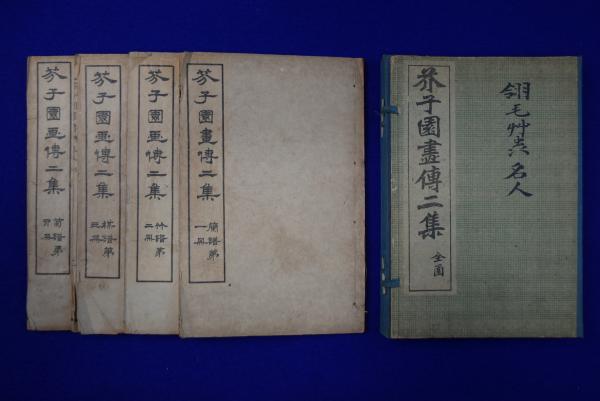 芥子園畫傳二集
蘭譜第
一冊
芥子園画傳二集
竹譜第
二冊
芥子園画傳二集
梅譜第
三冊
芥子園画傳二集
菊譜第
四冊
芥子園畫傳二集
全函
翎毛艸虫
名人